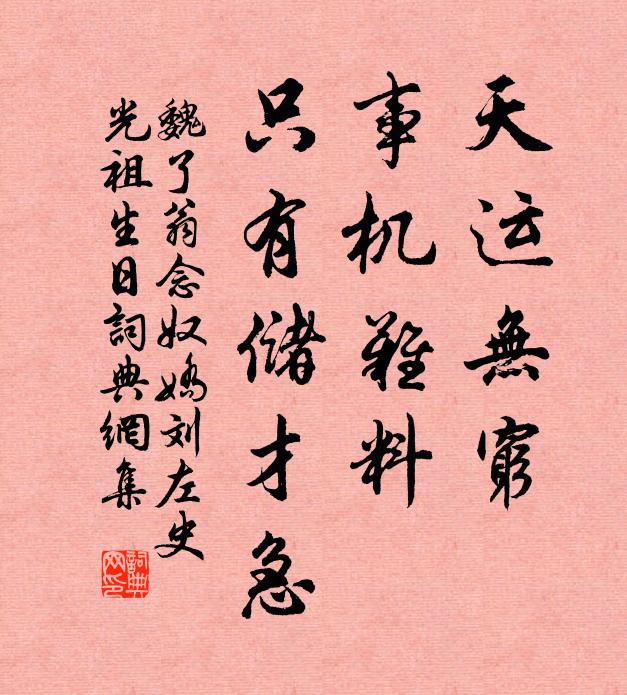 天运無窮
事机難料
只有儲才急
魏了翁念奴嬌刘左史
光祖生日詞典網集
詞典网印